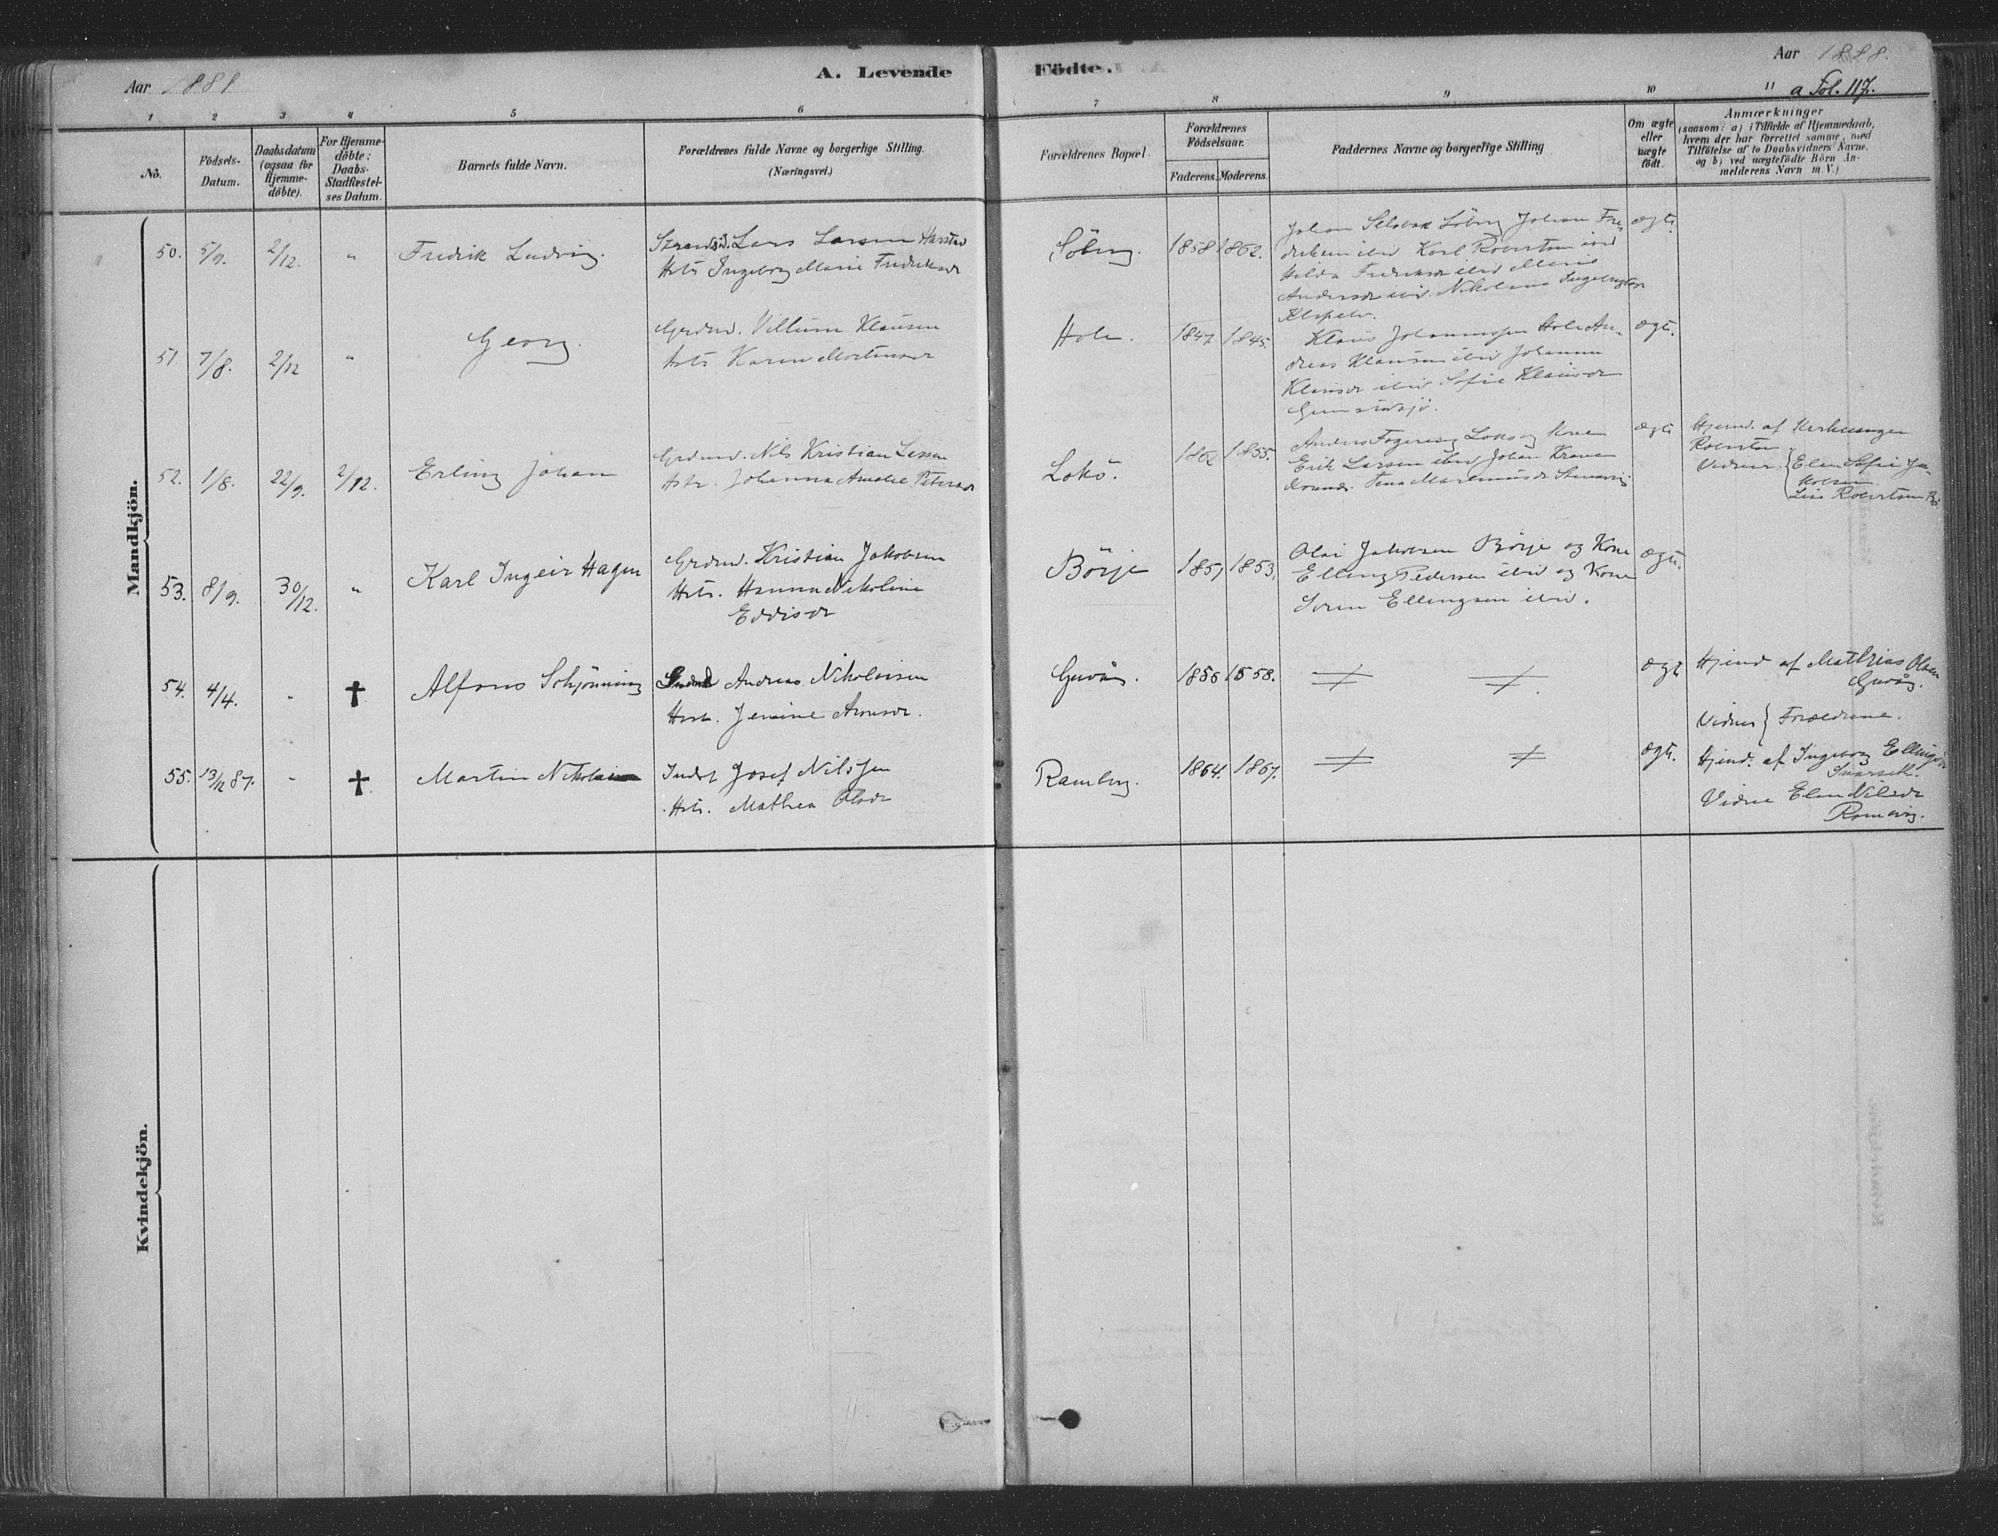 Aar 1888
A. Levende
Födte.
Aar 1888.
a Fol. 117.
1 2 3 4 5 6 7 8 9 10 11
No.
Födsels-Datum.
Daabsdatum (ogsaa for Hjemme-döbte).
For Hjemme-döbte: Daabs-Stadfæstel-ses Datum.
Barnets fulde Navn.
Forældrenes fulde Navne og borgerlige Stilling.
(Næringsvei.)
Forældrenes Bopæl.
Forældrenes Födselsaar.
Faderens. Moderens.
Faddernes Navne og borgerlige Stilling
Om ægte eller uægte födt.
Anmærkninger
(saasom: a) i Tilfælde af Hjemmedaab,
hvem der har forrettet samme, med
Tilföielse af to Daabsvidners Navne.
og b) ved uægtefödte Börn An-
melderens Navn m. V.)
Mandkjön.
50. 5/9. 2/12. " Fredrik Ludvig.
Lars Larsen Harstad
Hstr Ingeborg Marie Fredriksdr
Söberg. 1858 1862.
Johan Söberg Johan Fre-
driksen ibid Karl Robertsen ibid
Hilda Fredriksdr ibid Marie
Andersdr ibid. Nikolaus
ægte.
51. 7/8. 2/12 " Georg.
Grdmd. Villum Klausen
Hstr Karen Mortensdr
Hole. 1847 1845.
Klaus Johannssen Hole An-
dreas Klausen ibid Johanna
Klausdr ibid. Sofie Klausdr
ægte.
52. 1/8. 22/9. 2/12. Erling Johan
Grdmd. Nils Kristian
Hstr. Johanna Amalie Petersdr
Lokö. 1862 1855.
Anders Lokö og Kone
Erik Larsen ibid Johan
ægte
Hjemd. af Kirkesanger
Robertsen.
Vidner. { Elen Sofie Ja-
kobsen.
Robertsen
53. 8/9. 30/12. " Karl Ingeir Hagen
Grdmd. Kristian Jakobsen
Hstr. Hanna Nikoline
Eddisdr
Börje 1851 1853.
Olai Jakobsen Börje og Kone
Elling Pedersen ibid og Kone
Sören Ellingsen ibid.
ægte.
54. 4/4. " † Alfons Schjönning
Andreas Nikolaisen
Hstr. Jensine Aronsdr.
1856 1858. ≠ ≠.
ægte Hjemd af Mathias Olsen
Vidner } Forældrene.
55. 13/12 87. " † Martin Nikolai
Inderst Josef Nilssen
Hstr. Mathea Olsdr
Ramberg. 1864. 1867. ≠ ≠
ægte. Hjemd. af Ingeborg Ellingsdr
Vidne Elen Nilsdr
Kvindekjön.